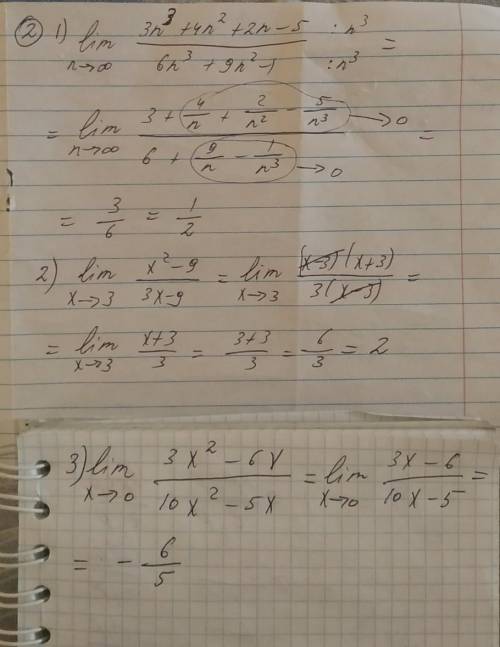 ② 1) lim n→∞ (3n³ + 4n² + 2n - 5)/(6n³ + 9n² - 1) :n³ :n³ =
= lim n→∞ (3 + 4/n + 2/n² - 5/n³ → 0)/(6 + 9/n - 1/n³ → 0) =
= 3/6 = 1/2
2) lim x→3 (x² - 9)/(3x - 9) = lim x→3 ((x-3)(x+3))/(3(x-3)) =
= lim x→3 (x+3)/3 = (3+3)/3 = 6/3 = 2
3) lim x→0 (3x² - 6x)/(10x² - 5x) = lim x→0 (3x - 6)/(10x - 5) =
= - 6/5